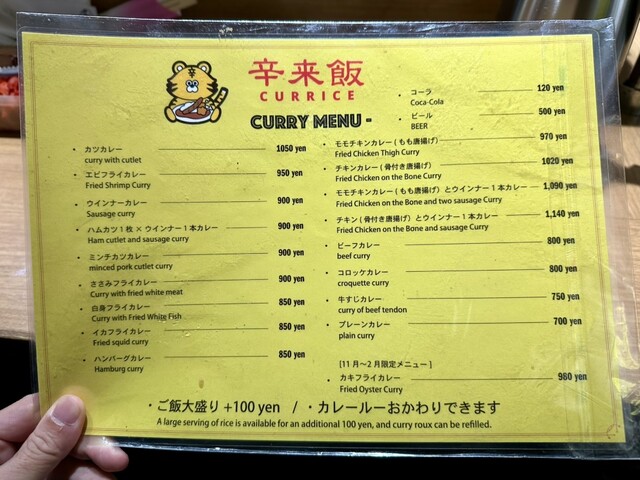 辛来飯
CURRICE
CURRY MENU -
・コーラ 120 yen
Coca-Cola
・ビール 500 yen
BEER
・カツカレー 1050 yen
curry with cutlet
・エビフライカレー 950 yen
Fried Shrimp Curry
・ウインナーカレー 900 yen
Sausage curry
・ハムカツ1枚 × ウインナー1本カレー 900 yen
Ham cutlet and sausage curry
・ミンチカツカレー 900 yen
minced pork cutlet curry
・ささみフライカレー 900 yen
Curry with fried white meat
・白身フライカレー 850 yen
Curry with Fried White Fish
・イカフライカレー 850 yen
Fried squid curry
・ハンバーグカレー 850 yen
Hamburg curry
・モモチキンカレー ( もも唐揚げ ) 970 yen
Fried Chicken Thigh Curry
・チキンカレー ( 骨付き唐揚げ ) 1020 yen
Fried Chicken on the Bone Curry
・モモチキンカレー ( もも唐揚げ ) とウインナー1本カレー 1,090 yen
Fried Chicken on the Bone and two sausage Curry
・チキン ( 骨付き唐揚げ ) とウインナー1本カレー 1,140 yen
Fried Chicken on the Bone and sausage Curry
・ビーフカレー 800 yen
beef curry
・コロッケカレー 800 yen
croquette curry
・牛すじカレー 750 yen
curry of beef tendon
・プレーンカレー 700 yen
plain curry
[ 11 月〜2 月限定メニュー ]
・カキフライカレー 960 yen
Fried Oyster Curry
・ご飯大盛り +100 yen / ・カレールーおかわりできます
A large serving of rice is available for an additional 100 yen, and curry roux can be refilled.